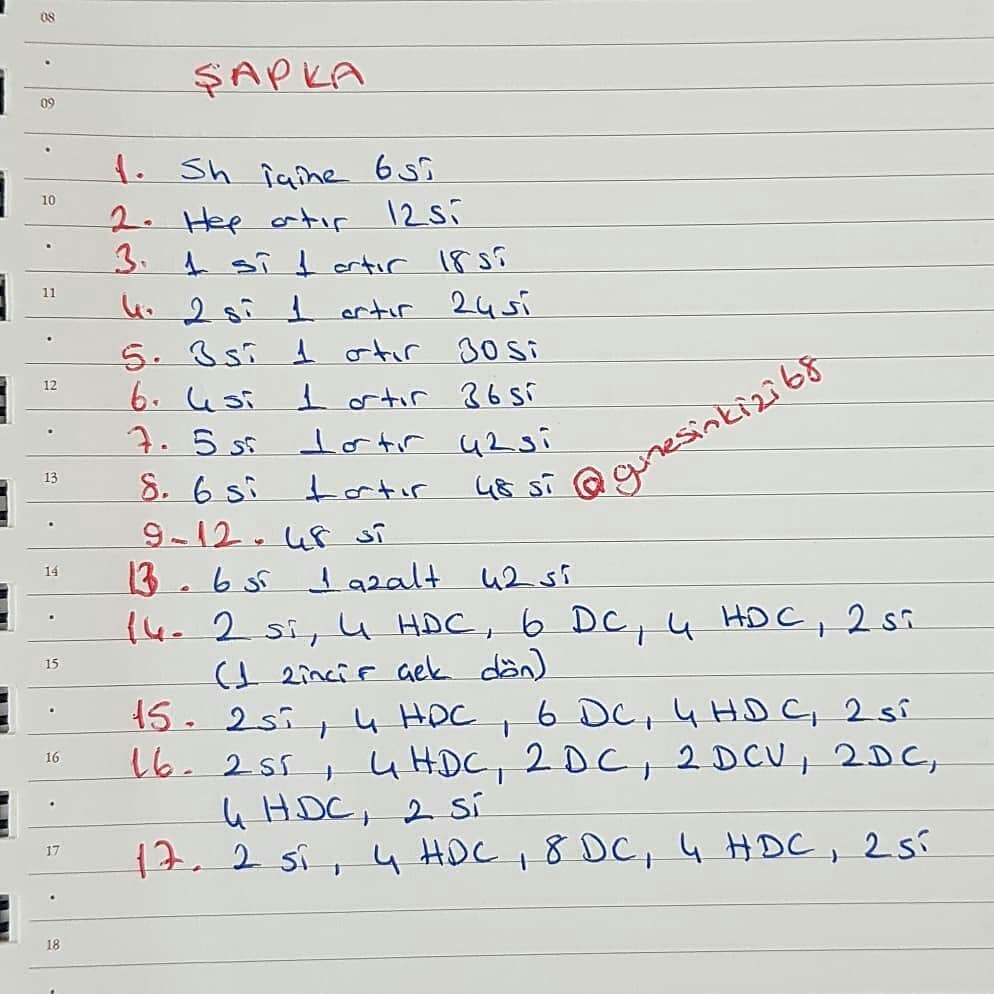 08
09
ŞAPKA
1. Sh içine 6 si
10
2. Hep artır 12 si
3. 1 si 1 artır 18 si
11
4. 2 si 1 artır 24 si
5. 3 si 1 artır 30 si
12
6. 4 si 1 artır 36 si
7. 5 si 1 artır 42 si
13
8. 6 si 1 artır 48 si @gunesinkizi68
9-12. 48 si
14
13. 6 si 1 azalt 42 si
14. 2 si, 4 HDC, 6 DC, 4 HDC, 2 si
15
(1 zincir çek dön)
15. 2 si, 4 HDC, 6 DC, 4 HDC, 2 si
16
16. 2 si, 4 HDC, 2 DC, 2 DCV, 2 DC,
4 HDC, 2 si
17
17. 2 si, 4 HDC, 8 DC, 4 HDC, 2 si
18